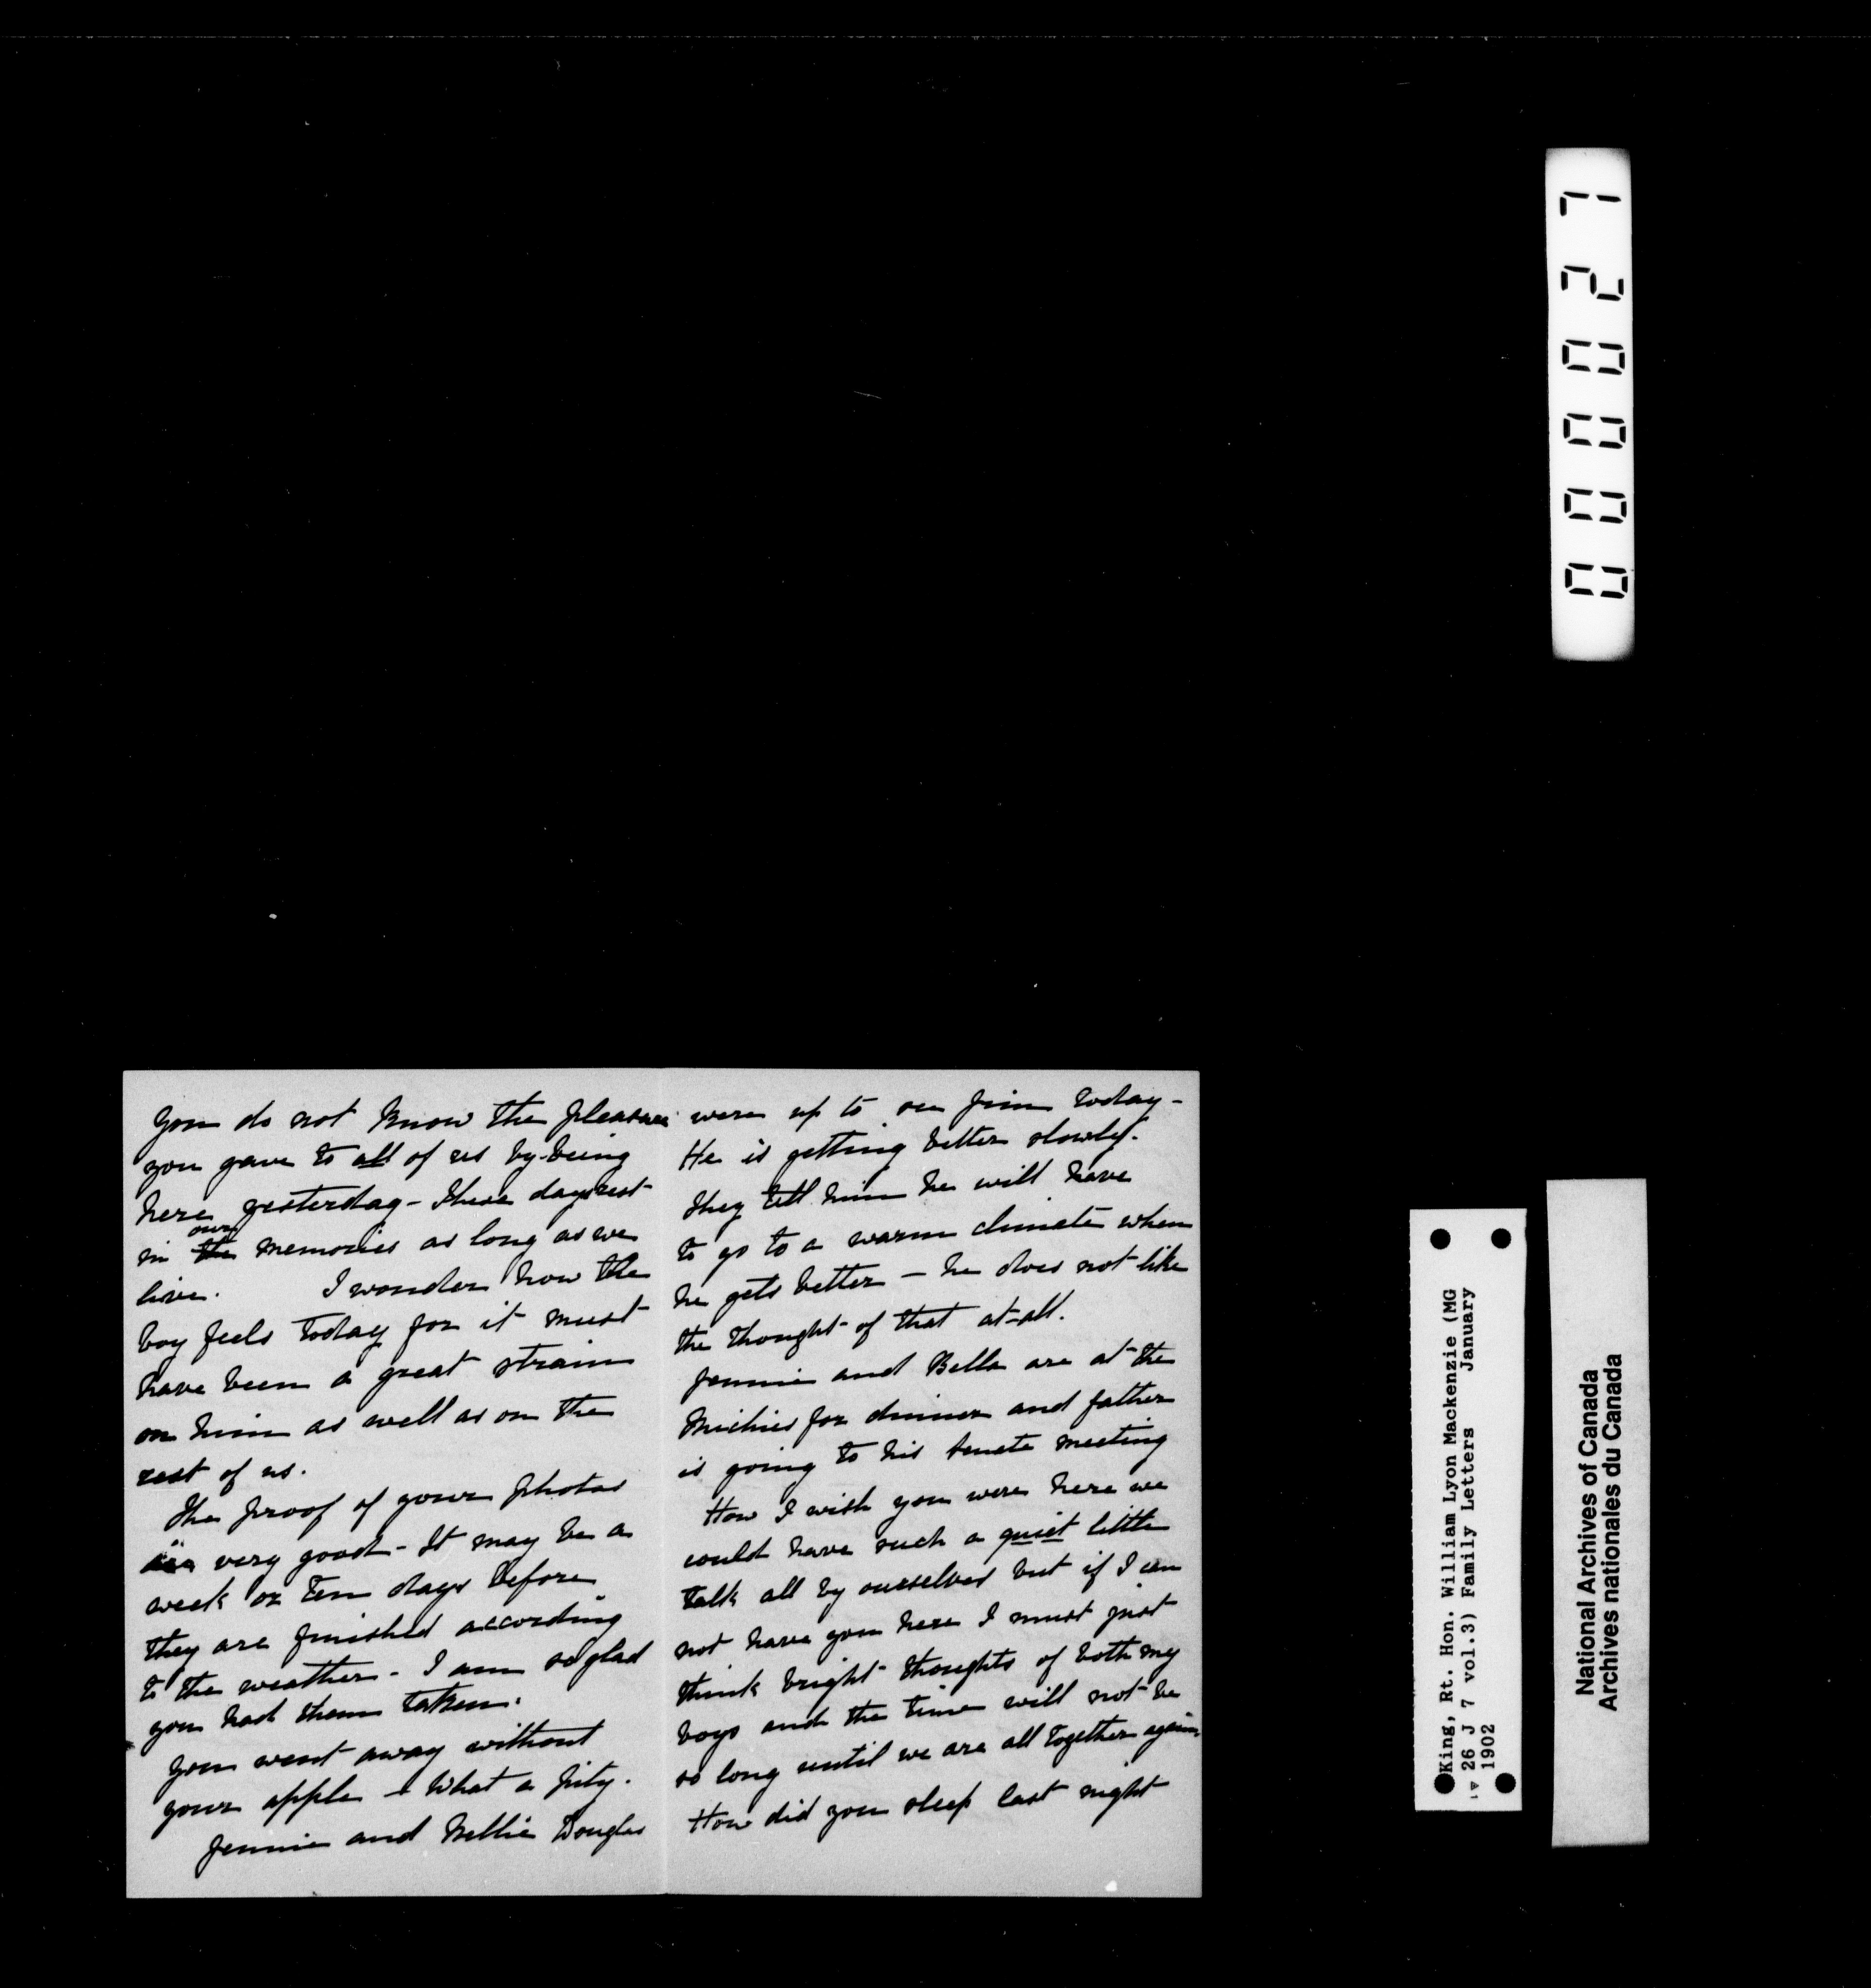 You do not know the pleasure
you gave to all of us by being
here yesterday - These days rest
in the our memories as long as we
live. I wonder how the
boy feels today for it must
have been a great strain
on him as well as on the
rest of us.
The proof of your photos
very good - It may be a
week or ten days before
they are finished according
to the weather - I am so glad
you had them taken.
You went away without
your apple - What a pity.
Jennie and Nellie Douglas
were up to see Jim today -
He is getting better slowly.
They tell him he will have
to go to a warm climate when
he gets better - he does not like
the thought of that at all.
Jennie and Bella are at the
Michies for dinner and father
is going to his senate meeting
How I wish you were here we
could have such a quiet little
talk all by ourselves but if I can
not have you here I must just
think bright thoughts of both my
boys and the time will not be
so long until we are all together again.
How did you sleep last night
000027
King, Rt. Hon. William Lyon Mackenzie (MG
26 J 7 vol.3) Family Letters January
1902
National Archives of Canada
Archives nationales du Canada